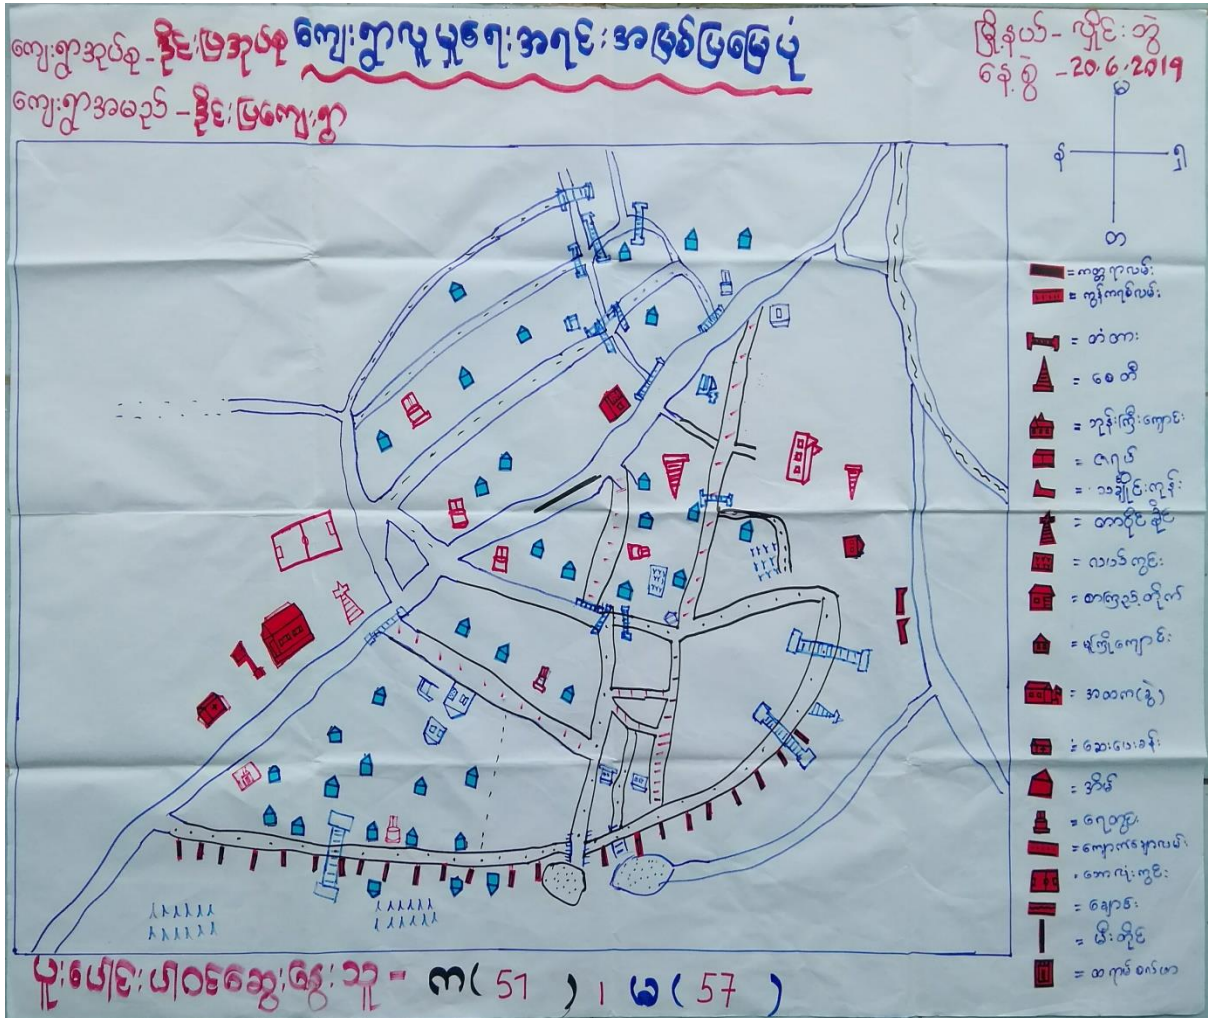 ကျေးရွာအုပ်စု - ဒိုင်းမြအုပ်စု
ကျေးရွာလူမှုရေးအရင်းအမြစ်ပြမြေပုံ
မြို့နယ် - လှိုင်းဘွဲ
နေ့စွဲ - 20.6.2019
ကျေးရွာအမည် - ဒိုင်းမြကျေးရွာ
မ
န
ရှ
တ
= ကတ္တရာလမ်း
= ကွန်ကရစ်လမ်း
= တံတား
= စေတီ
= ဘုန်းကြီးကျောင်း
= ဇရပ်
= သင်္ချိုင်းကုန်း
= တာဝိုင်းခိုင်
= လယ်ကွင်း
= စာကြည့်တိုက်
= မူကြိုကျောင်း
= အထက(ခွဲ)
= ဆေးပေးခန်း
= အိမ်
= ရေတွင်း
= ကျောက်ချောလမ်း
= ဘောလုံးကွင်း
= ချောင်း
= မီးတိုင်
= ထရန်စဖော်မာ
ပူးပေါင်းပါဝင်ဆွေးနွေးသူ - က ( 51 ) ၊ မ ( 57 )